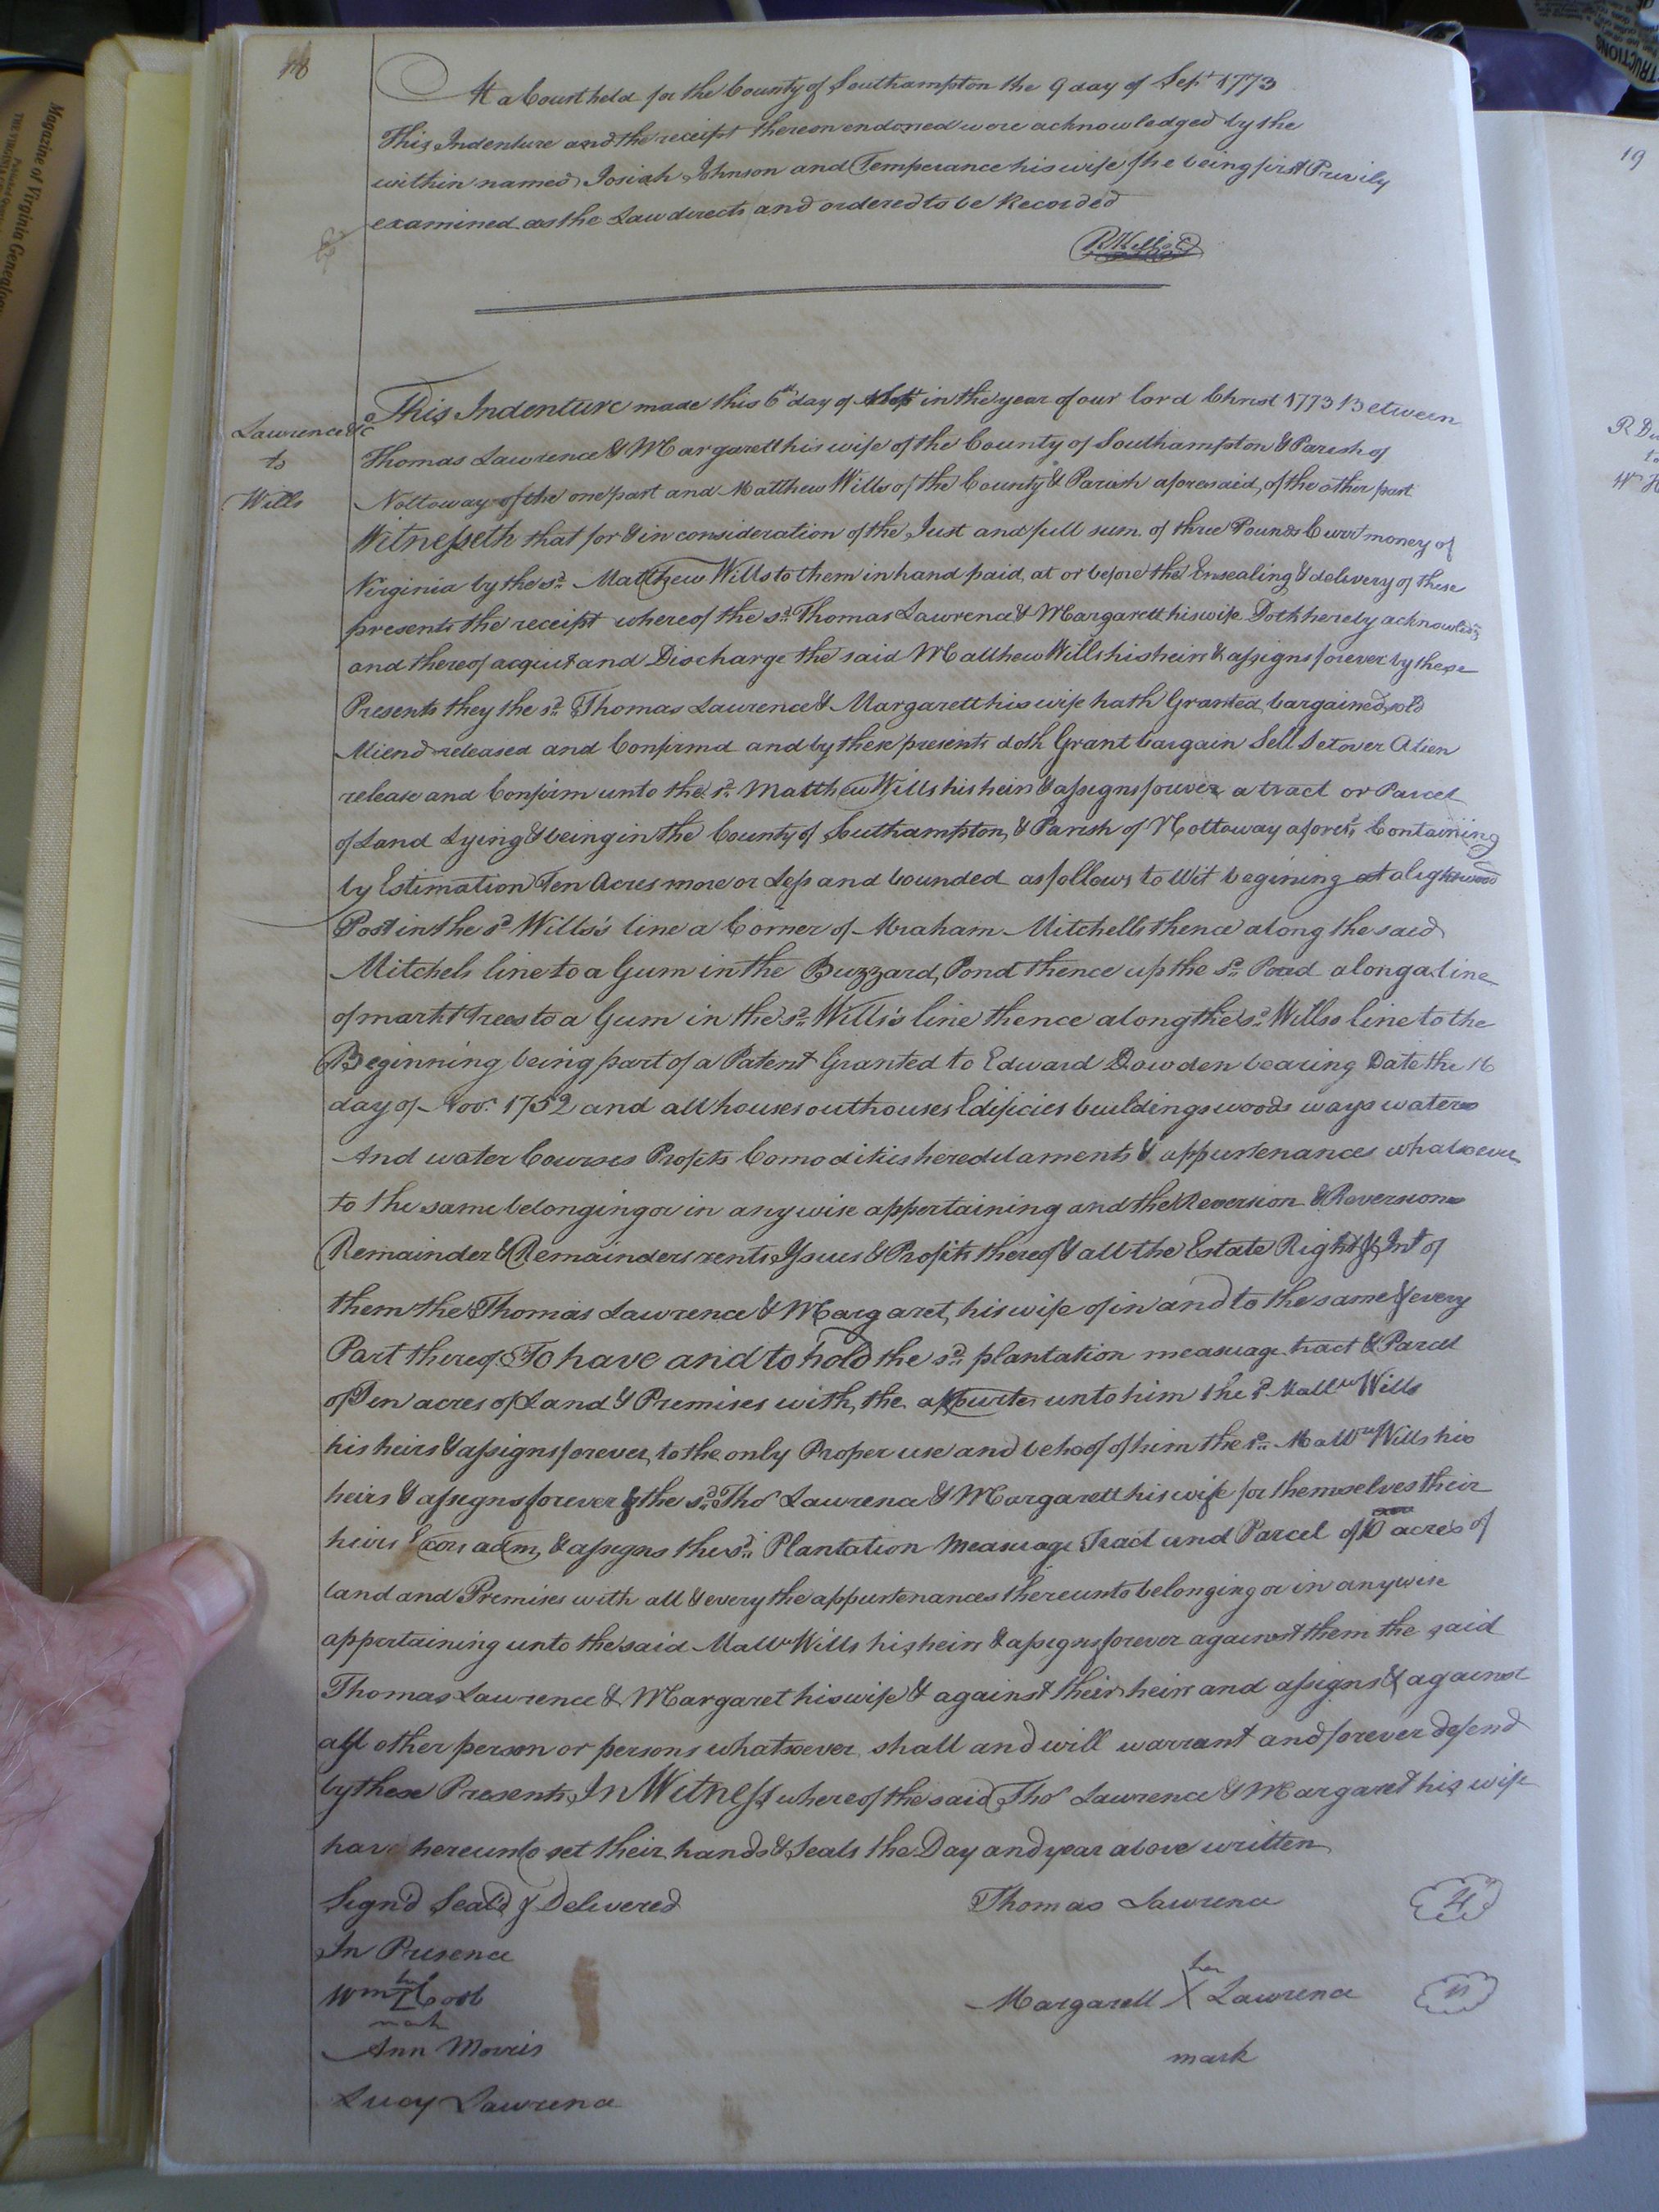 18
At a Court held for the County of Southampton the 9 day of Sept 1773
This Indenture and the receipt thereon endorsed were acknowledged by the
within named Josiah Johnson and Temperance his wife she being first Privily
examined as the Law directs and ordered to be Recorded
Lawrence &c
to
Wills
This Indenture made this 6th day of Sept in the year of our lord Christ 1773 Between
Thomas Lawrence & Margarett his wife of the County of Southampton & Parish of
Nottoway of the one part and Matthew Wills of the County & Parish aforesaid, of the other part
Witnesseth that for & in consideration of the Just and full sum of three Pounds Currt money of
Virginia by the sd. Matthew Wills to them in hand paid, at or before the Ensealing & delivery of these
presents the receipt whereof the sd. Thomas Lawrence & Margarett his wife Doth hereby acknowledg
and thereof acquit and Discharge the said Matthew Wills his heirs & assigns forever by these
Presents they the sd. Thomas Lawrence & Margarett his wife hath Granted, bargained, sold
Aliend released and Confirmd and by these presents doth Grant bargain Sell Set over Alien
release and Confirm unto the sd. Matthew Wills his heirs & assigns forever a tract or Parcel
of Land Lying & being in the County of Southampton, & Parish of Nottoway aforesd. Containing
by Estimation Ten Acres more or Less and bounded as follows to Wit begining at a lightwood
Post in the sd. Wills's line a Corner of Abraham Mitchells thence along the said
Mitchels line to a Gum in the Buzzard Pond thence up the sd. Pond along a line
of markt trees to a Gum in the sd. Wills's line thence along the sd. Wills line to the
Beginning being part of a Patent Granted to Edward Dowden bearing Date the 16
day of Nov. 1752 and all houses outhouses Edificies buildings woods ways waters
And water Courses Profits Comodities heredilaments & appurtenances whatsoever
to the same belonging or in any wise appertaining and the Reversion & Reversions
Remainder & Remainders rents Issues & Profits thereof & all the Estate Right & Int of
them the Thomas Lawrence & Margaret, his wife of in and to the same & every
Part thereof To have and to hold the sd. plantation measuage tract & Parcel
of Ten acres of Land & Premises with the appurtes unto him the sd. Mattw Wills
his heirs & assigns forever, to the only Proper use and behoof of him the sd. Mattw Wills his
heirs & assigns forever & the sd. Thos Lawrence & Margarett his wife for themselves their
heirs Exors adm, & assigns the sd. Plantation Measuage Tract and Parcel of 10 acres of
land and Premises with all & every the appurtenances thereunto belonging or in anywise
appertaining unto the said Mattw Wills his heirs & assigns forever against them the said
Thomas Lawrence & Margaret his wife & against their heirs and assigns & against
all other person or persons whatsoever shall and will warrant and forever defend
by these Presents, In Witness whereof the said Thos Lawrence & Margaret his wife
have hereunto set their hands & Seals the Day and year above written
Sign'd Seal'd & Delivered Thomas Lawrence
In Presence
her
Margarett X Lawrence
mark
Wm Cobb
mark
Ann Morris
Lucy Lawrence
19
Magazine of Virginia Genealogy